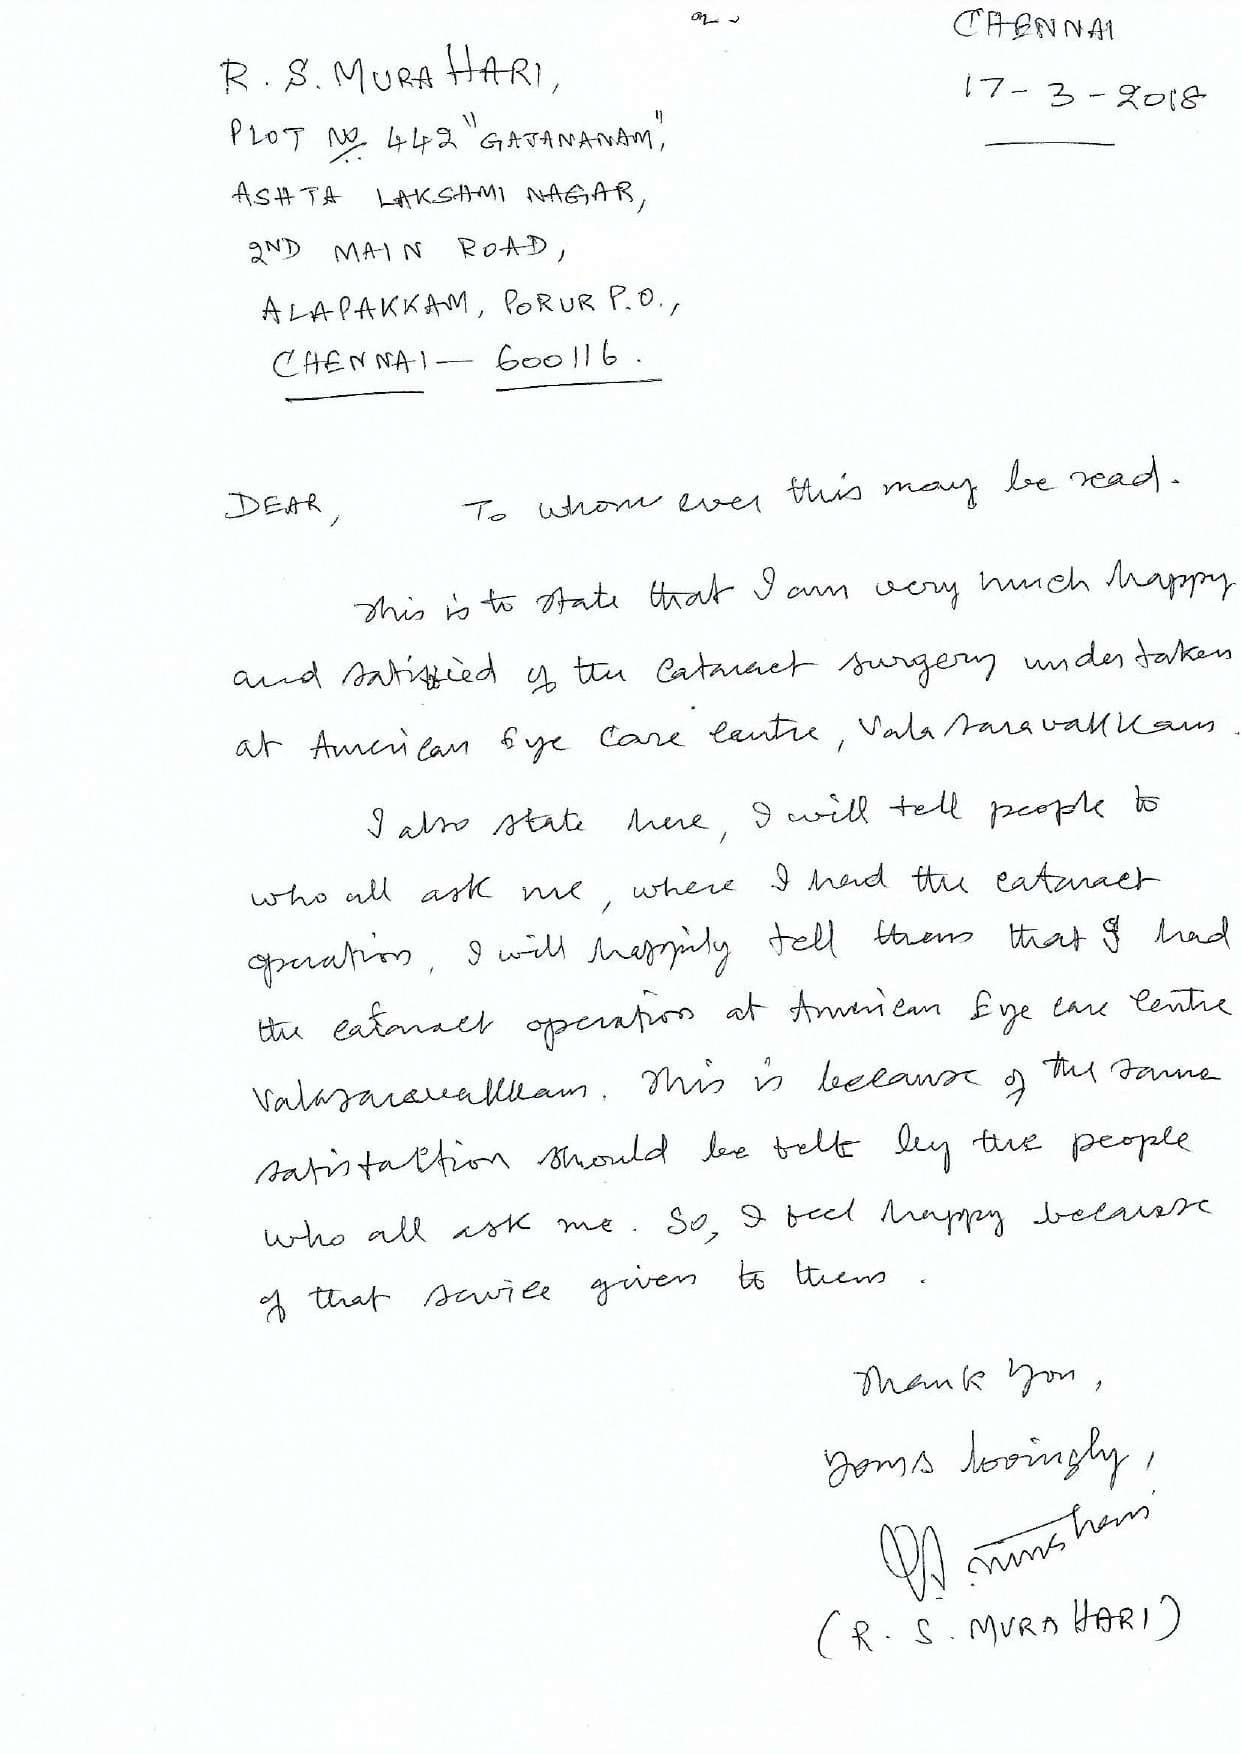 CHENNAI
17-3-2018
R. S. MURAHARI,
PLOT No. 442 "GAJANANAM",
ASHTA LAKSHMI NAGAR,
2ND MAIN ROAD,
ALAPAKKAM, PORUR P.O.,
CHENNAI — 600116.
DEAR, To whom ever this may be read.
This is to state that I am very much happy
and satisfied of the cataract surgery undertaken
at American Eye Care Centre, Valasaravakkam.
I also state here, I will tell people to
who all ask me, where I had the cataract
operation, I will happily tell them that I had
the cataract operation at American Eye Care Centre
Valasaravakkam. This is because of the same
satisfaction should be felt by the people
who all ask me. So, I feel happy because
of that service given to them.
Thank You,
Yours lovingly,
(R. S. MURAHARI)